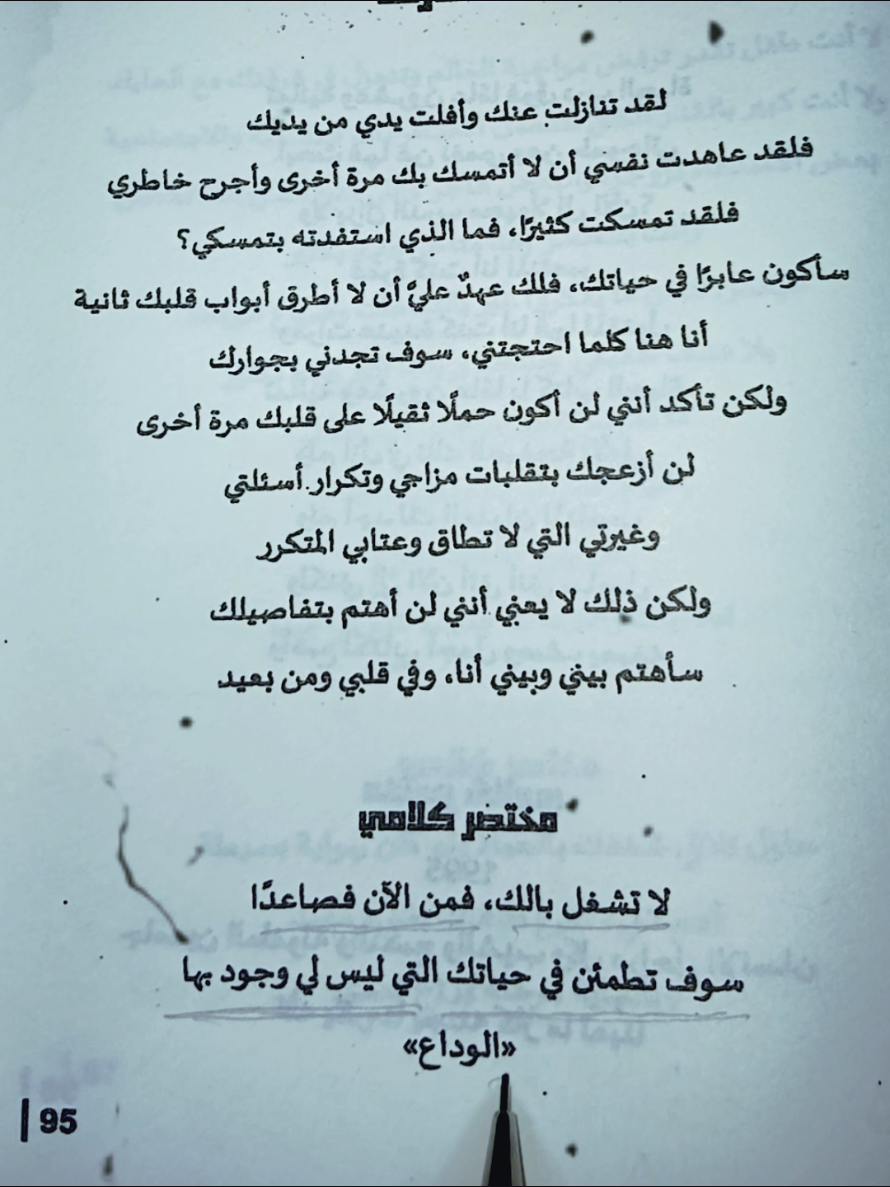 لقد تنازلت عنك وأفلت يدي من يديك
فلقد عاهدت نفسي أن لا أتمسك بك مرة أخرى وأجرح خاطري
فلقد تمسكت كثيرًا، فما الذي استفدته بتمسكي؟
سأكون عابرًا في حياتك، فلك عهدٌ عليَّ أن لا أطرق أبواب قلبك ثانية
أنا هنا كلما احتجتني، سوف تجدني بجوارك
ولكن تأكد أنني لن أكون حملًا ثقيلًا على قلبك مرة أخرى
لن أزعجك بتقلبات مزاجي وتكرار أسئلتي
وغيرتي التي لا تطاق وعتابي المتكرر
ولكن ذلك لا يعني أنني لن أهتم بتفاصيلك
سأهتم بيني وبيني أنا، وفي قلبي ومن بعيد
مختصر كلامي
لا تشغل بالك، فمن الآن فصاعدًا
سوف تطمئن في حياتك التي ليس لي وجود بها
«الوداع»
95